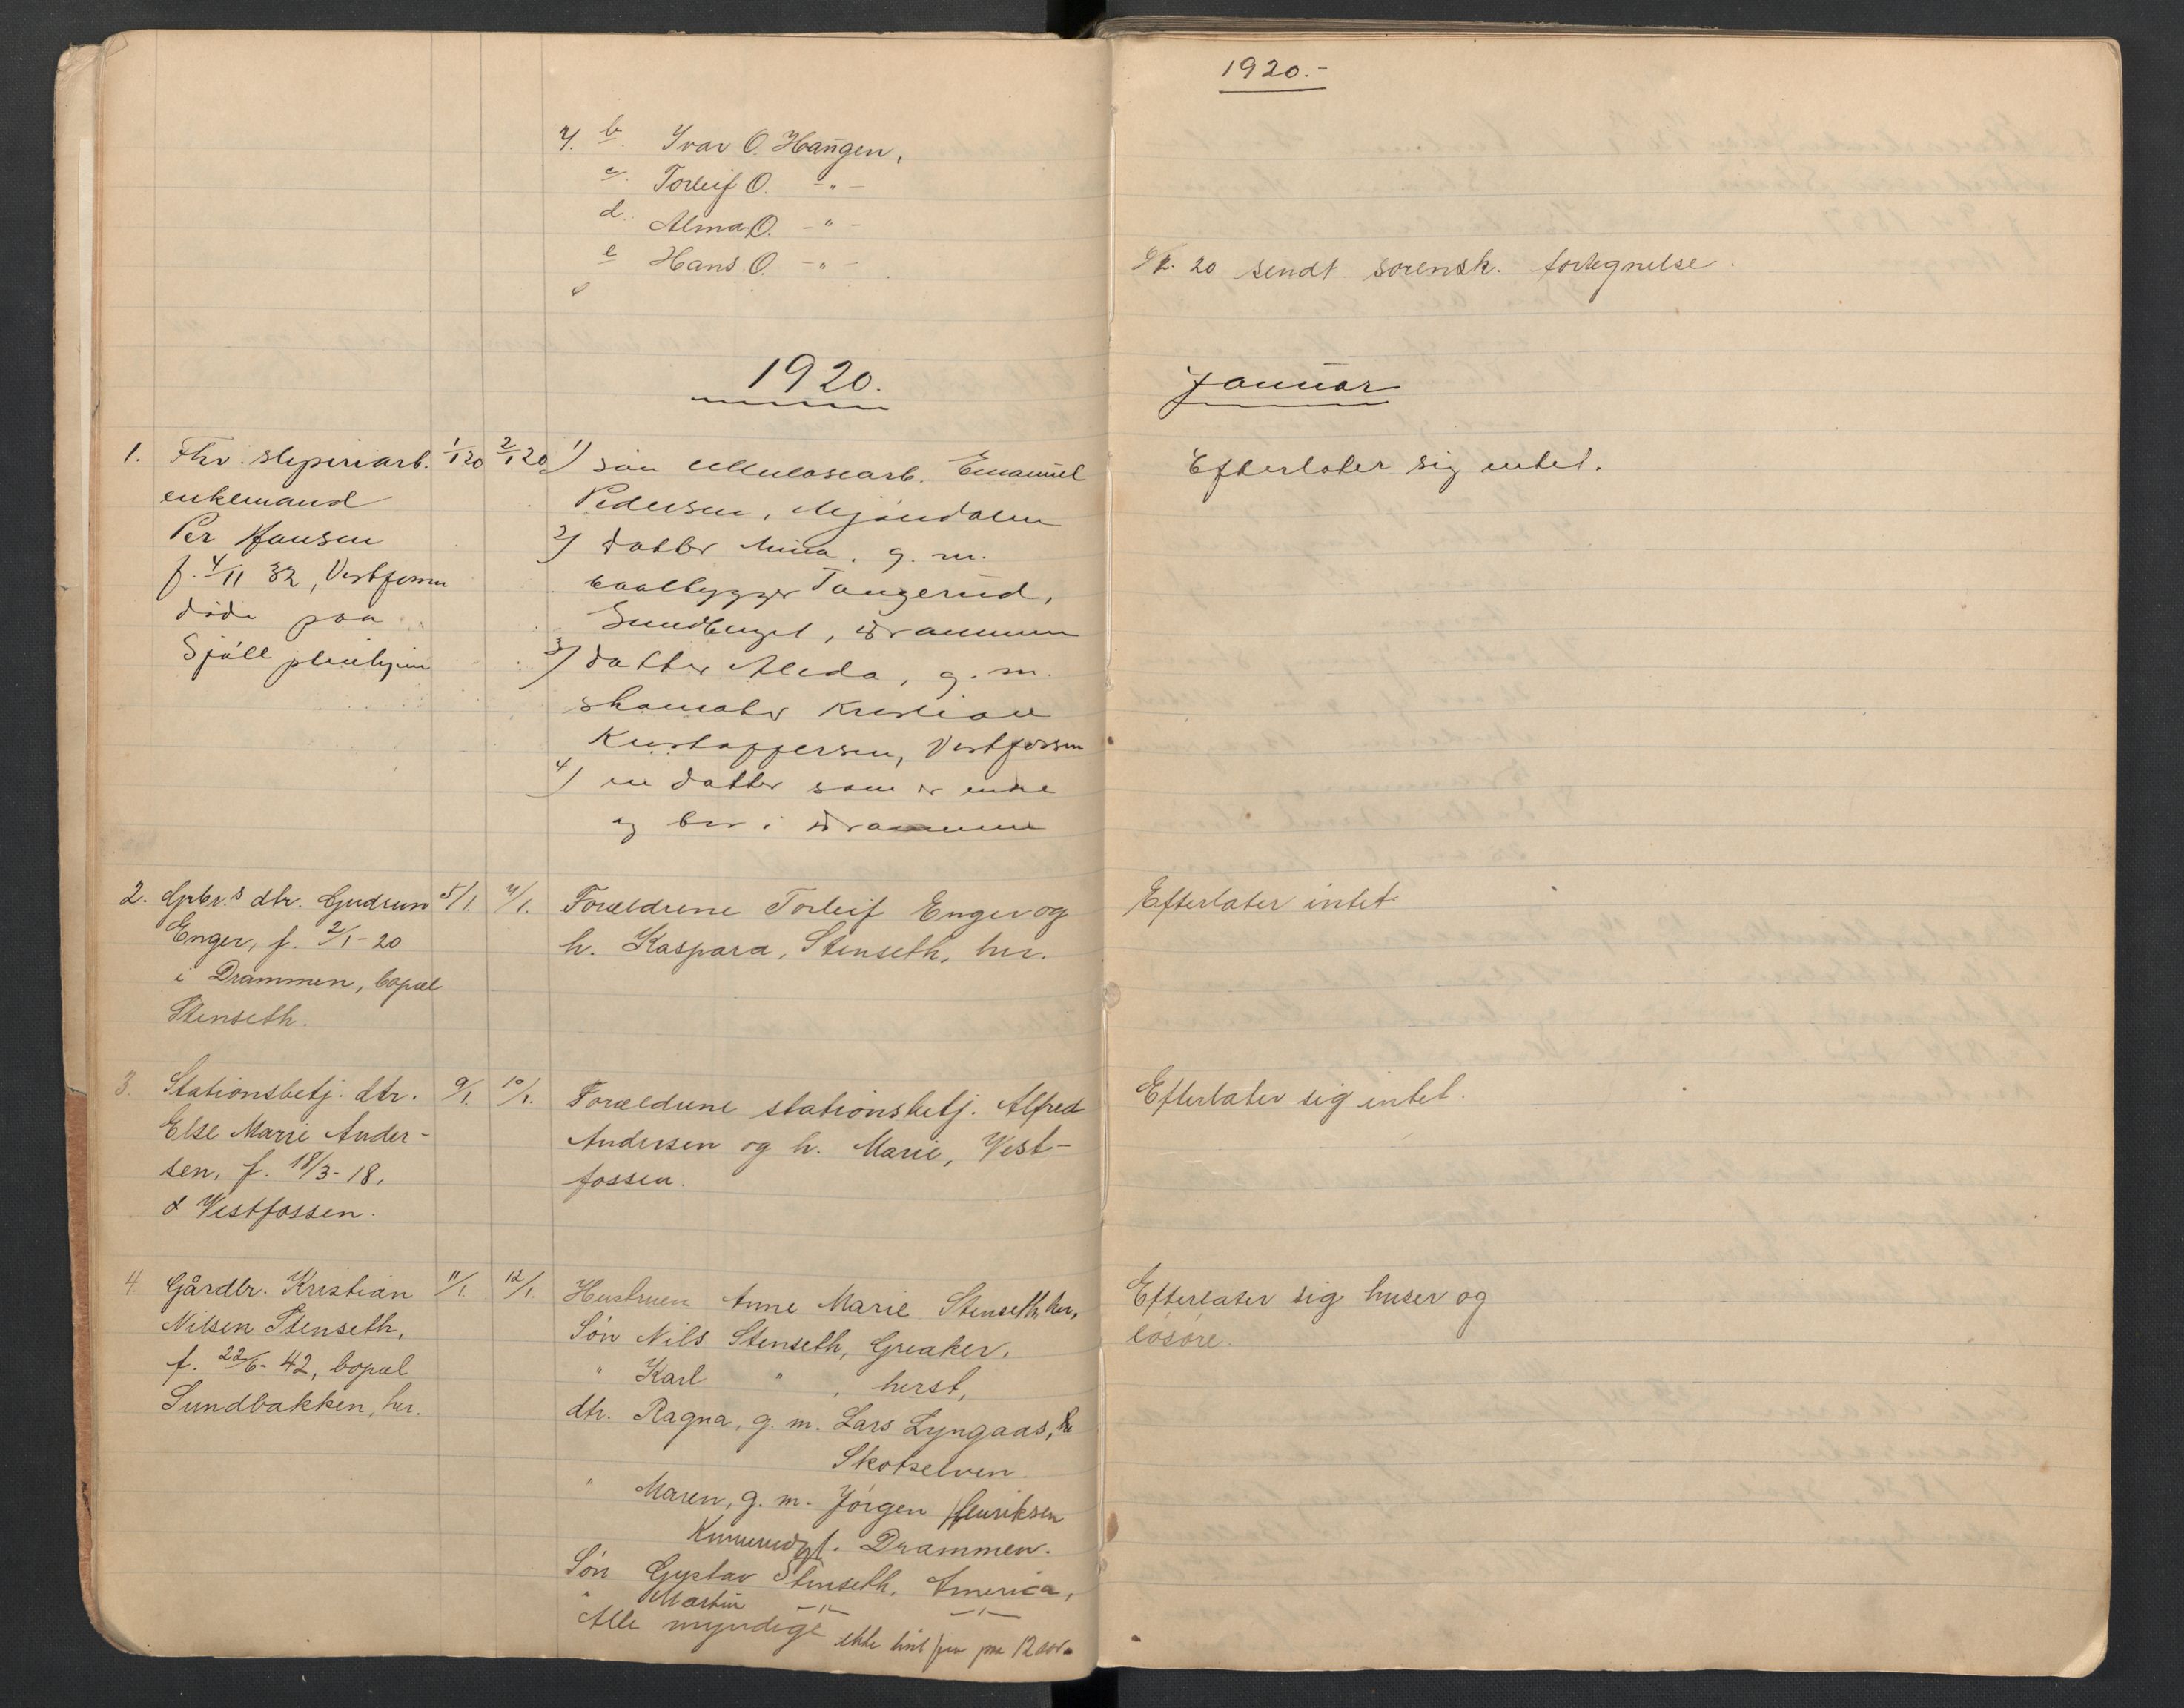 7. b. Ivar O. Haugen,
c. Torleif O. -"-
d. Alma O. -"-
e Hans O. -"-
1920.
1. Fhv. sliperiarb. 1/1 20 2/1 20 1) søn cellulosearb. Emanuel
enkemand Pedersen, Mjøndalen
Per Hansen 2) datter Mina, g. m.
f. 4/11 32, Vestfossen baatbygger Tangerud,
døde paa Sundhaugen, Drammen
Sjåll pleiehjem 3) datter Aleda, g. m.
skomaker Kristian
Kristoffersen, Vestfossen
4) en datter som er enke
og bor i Drammen
2. Grbr.s dtr. Gudrun 5/1. 7/1. Forældrene Torleif Enger og
Enger, f. 2/1-20 h. Kaspara, Stenseth, her.
i Drammen, bopæl
Stenseth.
3. Stationsbetj. dtr. 9/1. 10/1. Forældrene stationsbetj. Alfred
Else Marie Ander- Andersen og h. Marie, Vest-
sen, f. 18/3-18, fossen.
Vestfossen.
4. Gårdbr. Kristian 11/1. 12/1. Hustruen Anne Marie Stenseth, her,
Nilsen Stenseth, Søn Nils Stenseth, Greaker,
f. 22/6-42, bopæl " Karl " , herst,
Sundbakken, her. dtr. Ragna, g. m. Lars Lyngaas,
Skotselven.
" Maren, g. m. Jörgen Henriksen
Drammen.
Søn Gustav Stenseth, America,
" Martin -"- -"-
Alle myndige ikke paa 12 aar.
1920.-
20 sendt sorensk. fortegnelse.
Januar
Efterlater sig intet.
Efterlater intet.
Efterlater sig intet.
Efterlater sig huser og
løsøre.